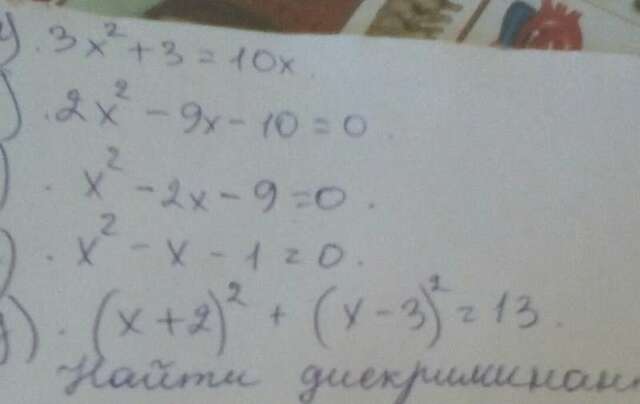 . 3x² + 3 = 10x.
. 2x² - 9x - 10 = 0.
. x² - 2x - 9 = 0.
. x² - x - 1 = 0.
). (x + 2)² + (x - 3)² = 13.
Найти дискриминан